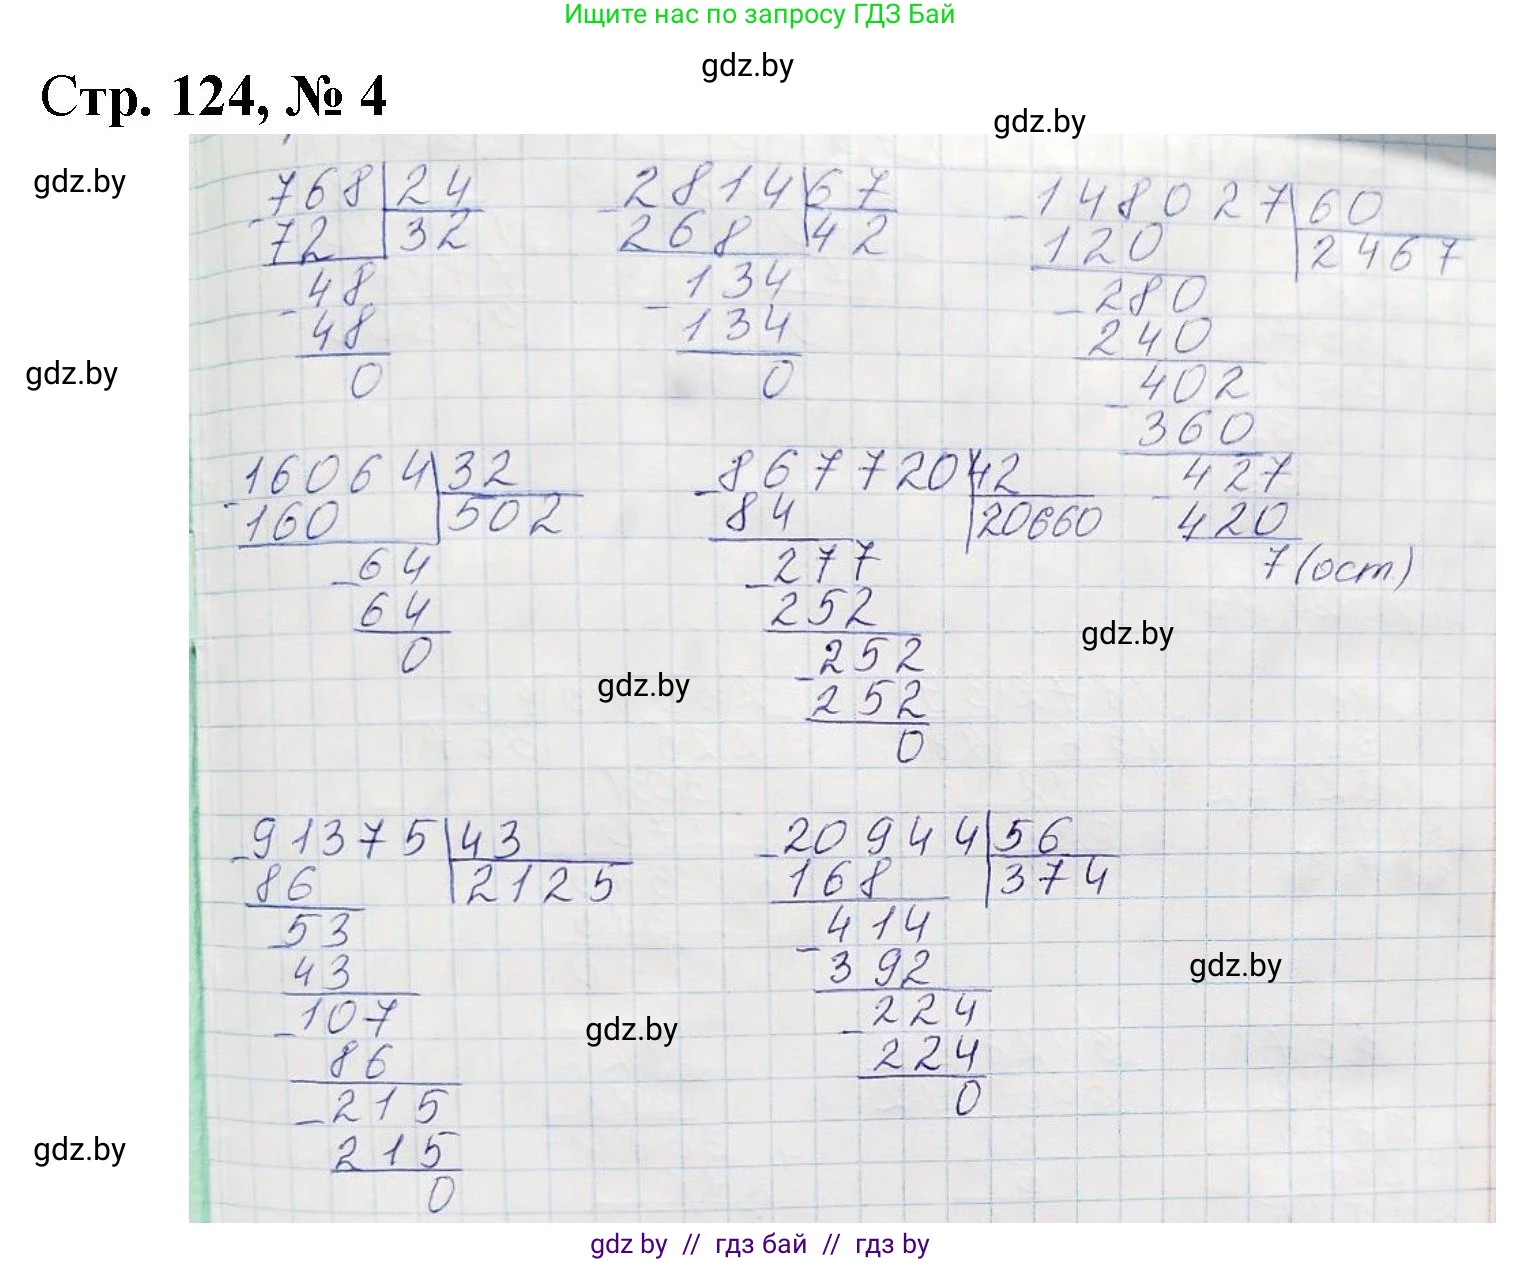 Ищите нас по запросу ГДЗ Бай
gdz.by
Стр. 124, № 4
gdz.by
gdz.by
768 24
- 72 32
- 48
48
0
2814 67
- 268 42
- 134
134
0
148027 60
- 120 2467
- 280
240
- 402
360
- 427
420
7 (ост.)
gdz.by
16064 32
- 160 502
- 64
64
0
867720 42
- 84 20660
- 277
252
- 252
252
0
gdz.by
gdz.by
91375 43
- 86 2125
- 53
43
- 107
86
- 215
215
0
20944 56
- 168 374
- 414
392
- 224
224
0
gdz.by
gdz.by
gdz.by
gdz by // гдз бай // гдз by